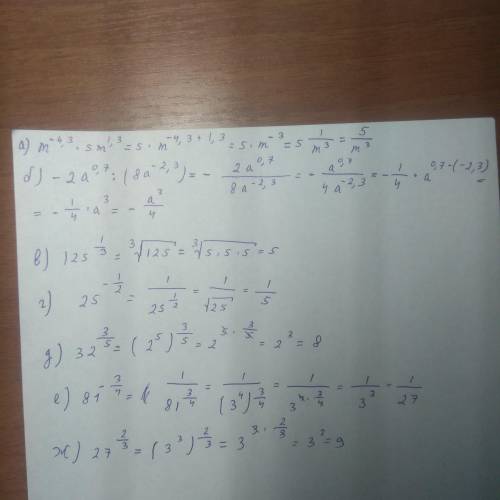 а) m^{-4,3} · 5m^{1,3} = 5 · m^{-4,3+1,3} = 5 · m^{-3} = 5 \frac{1}{m^3} = \frac{5}{m^3}
б) -2a^{0,7} : (8a^{-2,3}) = - \frac{2a^{0,7}}{8a^{-2,3}} = - \frac{a^{0,7}}{4a^{-2,3}} = - \frac{1}{4} · a^{0,7-(-2,3)} =
= - \frac{1}{4} · a^3 = - \frac{a^3}{4}
в) 125^{\frac{1}{3}} = \sqrt[3]{125} = \sqrt[3]{5·5·5} = 5
г) 25^{-\frac{1}{2}} = \frac{1}{25^{\frac{1}{2}}} = \frac{1}{\sqrt{25}} = \frac{1}{5}
д) 32^{\frac{3}{5}} = (2^5)^{\frac{3}{5}} = 2^{5·\frac{3}{5}} = 2^3 = 8
е) 81^{-\frac{3}{4}} = \frac{1}{81^{\frac{3}{4}}} = \frac{1}{(3^4)^{\frac{3}{4}}} = \frac{1}{3^{4·\frac{3}{4}}} = \frac{1}{3^3} = \frac{1}{27}
ж) 27^{\frac{2}{3}} = (3^3)^{\frac{2}{3}} = 3^{3·\frac{2}{3}} = 3^2 = 9